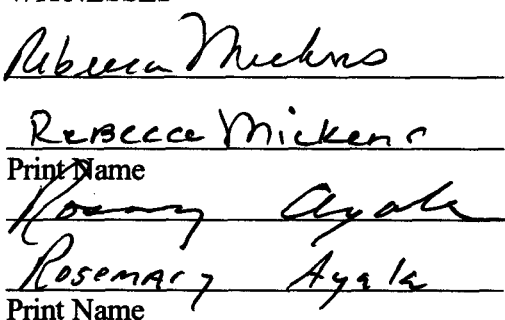 WITNESSES
Rebecca Mickens
Rebecca Mickens
Print Name
Rosemary Ayala
Rosemary Ayala
Print Name